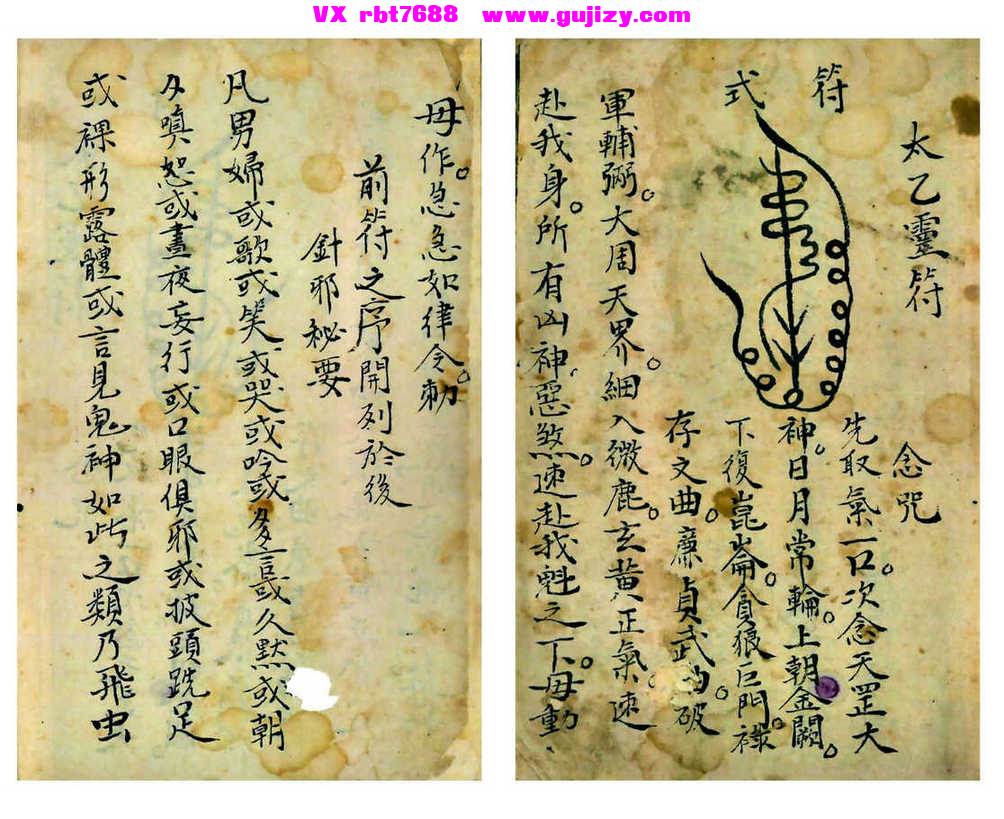 VX rbt7688 www.gujizy.com
太乙靈符
符式
念咒
先取氣一口。次念天罡大
神。日月常輪。上朝金闕。
下復崑崙。貪狼巨門。祿
存文曲。廉貞武曲。破
軍輔弼。大周天界。細入微鹿。玄黃正氣。速
赴我身。所有凶神惡煞。速赴我魁之下。毋動、
毋作。急急如律令。勅
前符之序開列於後
針邪秘要
凡男婦或歌或笑或哭或吟或多言或久默或朝
夕嗔怒或晝夜妄行或口眼俱邪或披頭跣足
或裸形露體或言見鬼神如此之類乃飛虫